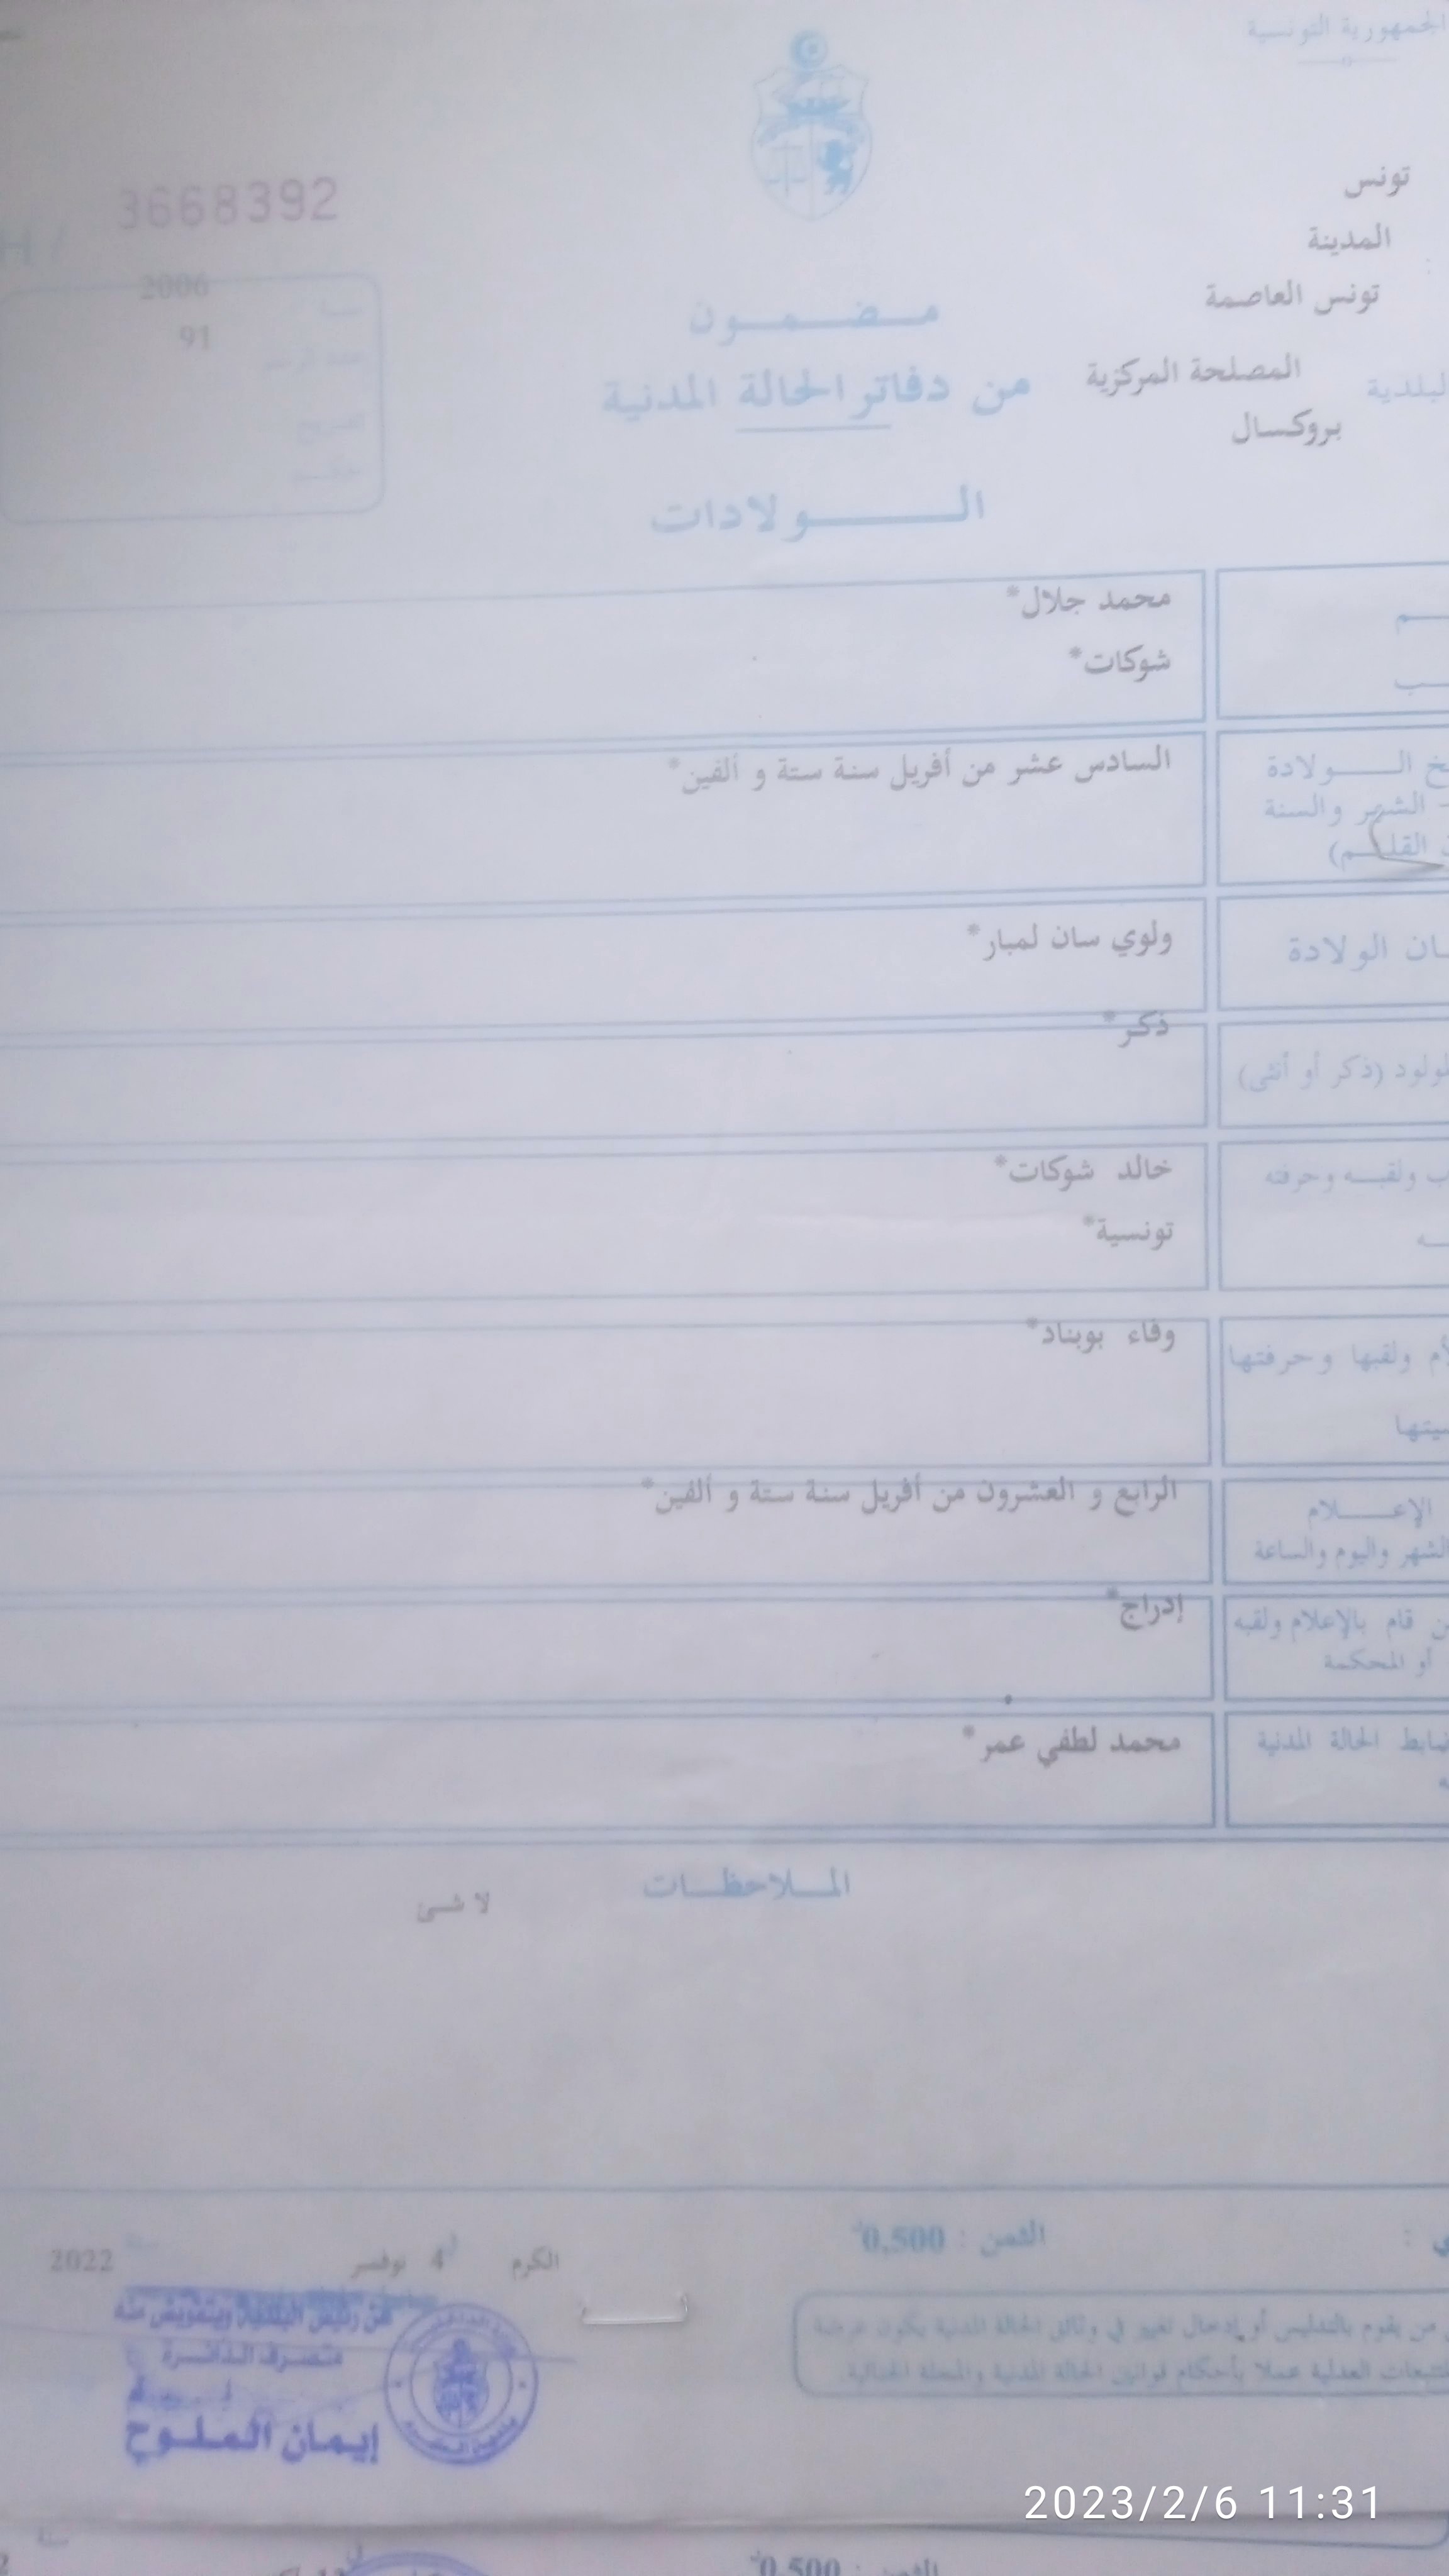 الجمهورية التونسية
تونس
المدينة
تونس العاصمة
المصلحة المركزية
بروكسال
3668392
2006
91
مضمون
من دفاتر الحالة المدنية
الولادات
محمد جلال*
شوكات*
الولادة
السادس عشر من أفريل سنة ستة و ألفين*
الشهر والسنة
القلم)
الولادة
ولوي سان لمبار*
(ذكر أو أنثى)
ذكر*
ولقبه وحرفته
خالد شوكات*
تونسية*
ولقبها وحرفتها
وفاء بوبناد*
الإعلام
الرابع و العشرون من أفريل سنة ستة و ألفين*
واليوم والساعة
قام بالإعلام ولقبه
إدراج*
أو المحكمة
الحالة المدنية
محمد لطفي عمر*
الملاحظات
لا شئ
الثمن : 0,500
الكرم 4 نوفمبر 2022
من يقوم بالتدليس أو إدخال تغيير في وثائق الحالة المدنية يكون عرضة
العدلية عملا بأحكام قوانين الحالة المدنية والمجلة الجنائية.
عن رئيس البلدية وبتفويض منه
متصرف الدائرة
إيمان الملوح
2023/2/6 11:31
الثمن : 0,500